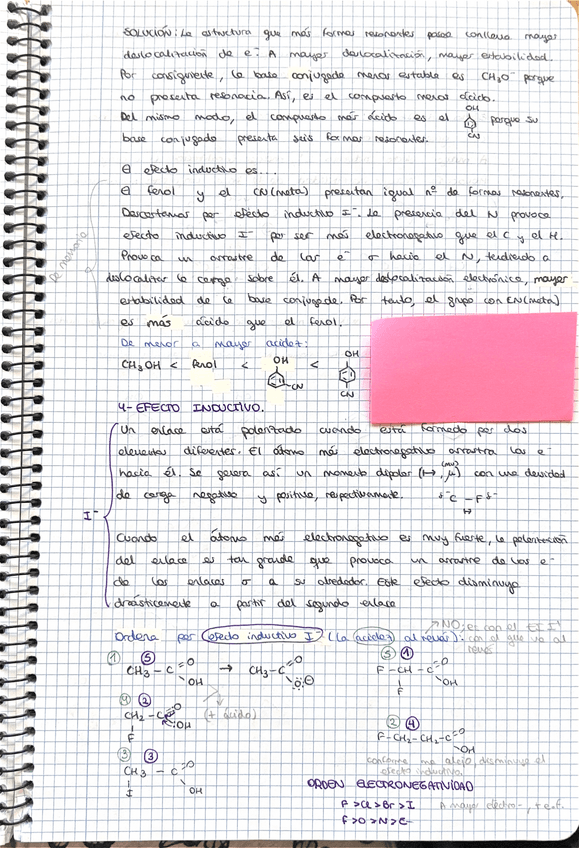 SOLUCIÓN: La estructura que más formas resonantes posee conlleva mayor
deslocalización de e⁻. A mayor deslocalización, mayor estabilidad.
Por consiguiente, la base conjugada menos estable es CH₃O⁻ porque
no presenta resonacia. Así, es el compuesto menos ácido.
OH
Del mismo modo, el compuesto más ácido es el porque su
CN
base conjugada presenta seis formas resonantes.
El efecto inductivo es...
El fenol y el CN(meta) presentan igual nº de formas resonantes.
Descartamos por efecto inductivo I⁻. La presencia del N provoca
efecto inductivo I⁻ por ser más electronegativo que el C y el H.
Provoca un arrastre de los e⁻ σ hacia el N, tendiendo a
deslocalizar la carga sobre él. A mayor deslocalización electrónica, mayor
estabilidad de la base conjugada. Por tanto, el grupo con CN(meta)
es más ácido que el fenol.
De memoria
De menor a mayor acidez:
OH OH
CH₃OH < fenol < <
CN CN
4- EFECTO INDUCTIVO.
Un enlace está polarizado cuando está formado por dos
elementos diferentes. El átomo más electronegativo arrastra los e⁻
hacia él. Se genera así un momento dipolar (↦, μ) (mu) con una densidad
de carga negativa y positiva, respectivamente. C - F
I⁻
Cuando el átomo más electronegativo es muy fuerte, la polarización
del enlace es tan grande que provoca un arrastre de los e⁻
de los enlaces σ a su alrededor. Este efecto disminuye
drásticamente a partir del segundo enlace
NO: es con el
Ordena por efecto inductivo I⁻ (la acidez al revés): con el que va al
revés
① ⑤ ⑤ ①
CH₃ - C =O OH → CH₃ - C =O O⊖ F - CH - C =O OH
F
④ ② (+ ácido)
CH₂ - C =O OH
F
② ④
F - CH₂ - CH₂ - C =O OH
③ ③
CH₃ - C =O OH
I
conforme me alejo, disminuye el
efecto inductivo.
ORDEN ELECTRONEGATIVIDAD
F > Cl > Br > I A mayor electro-,
F > O > N > C